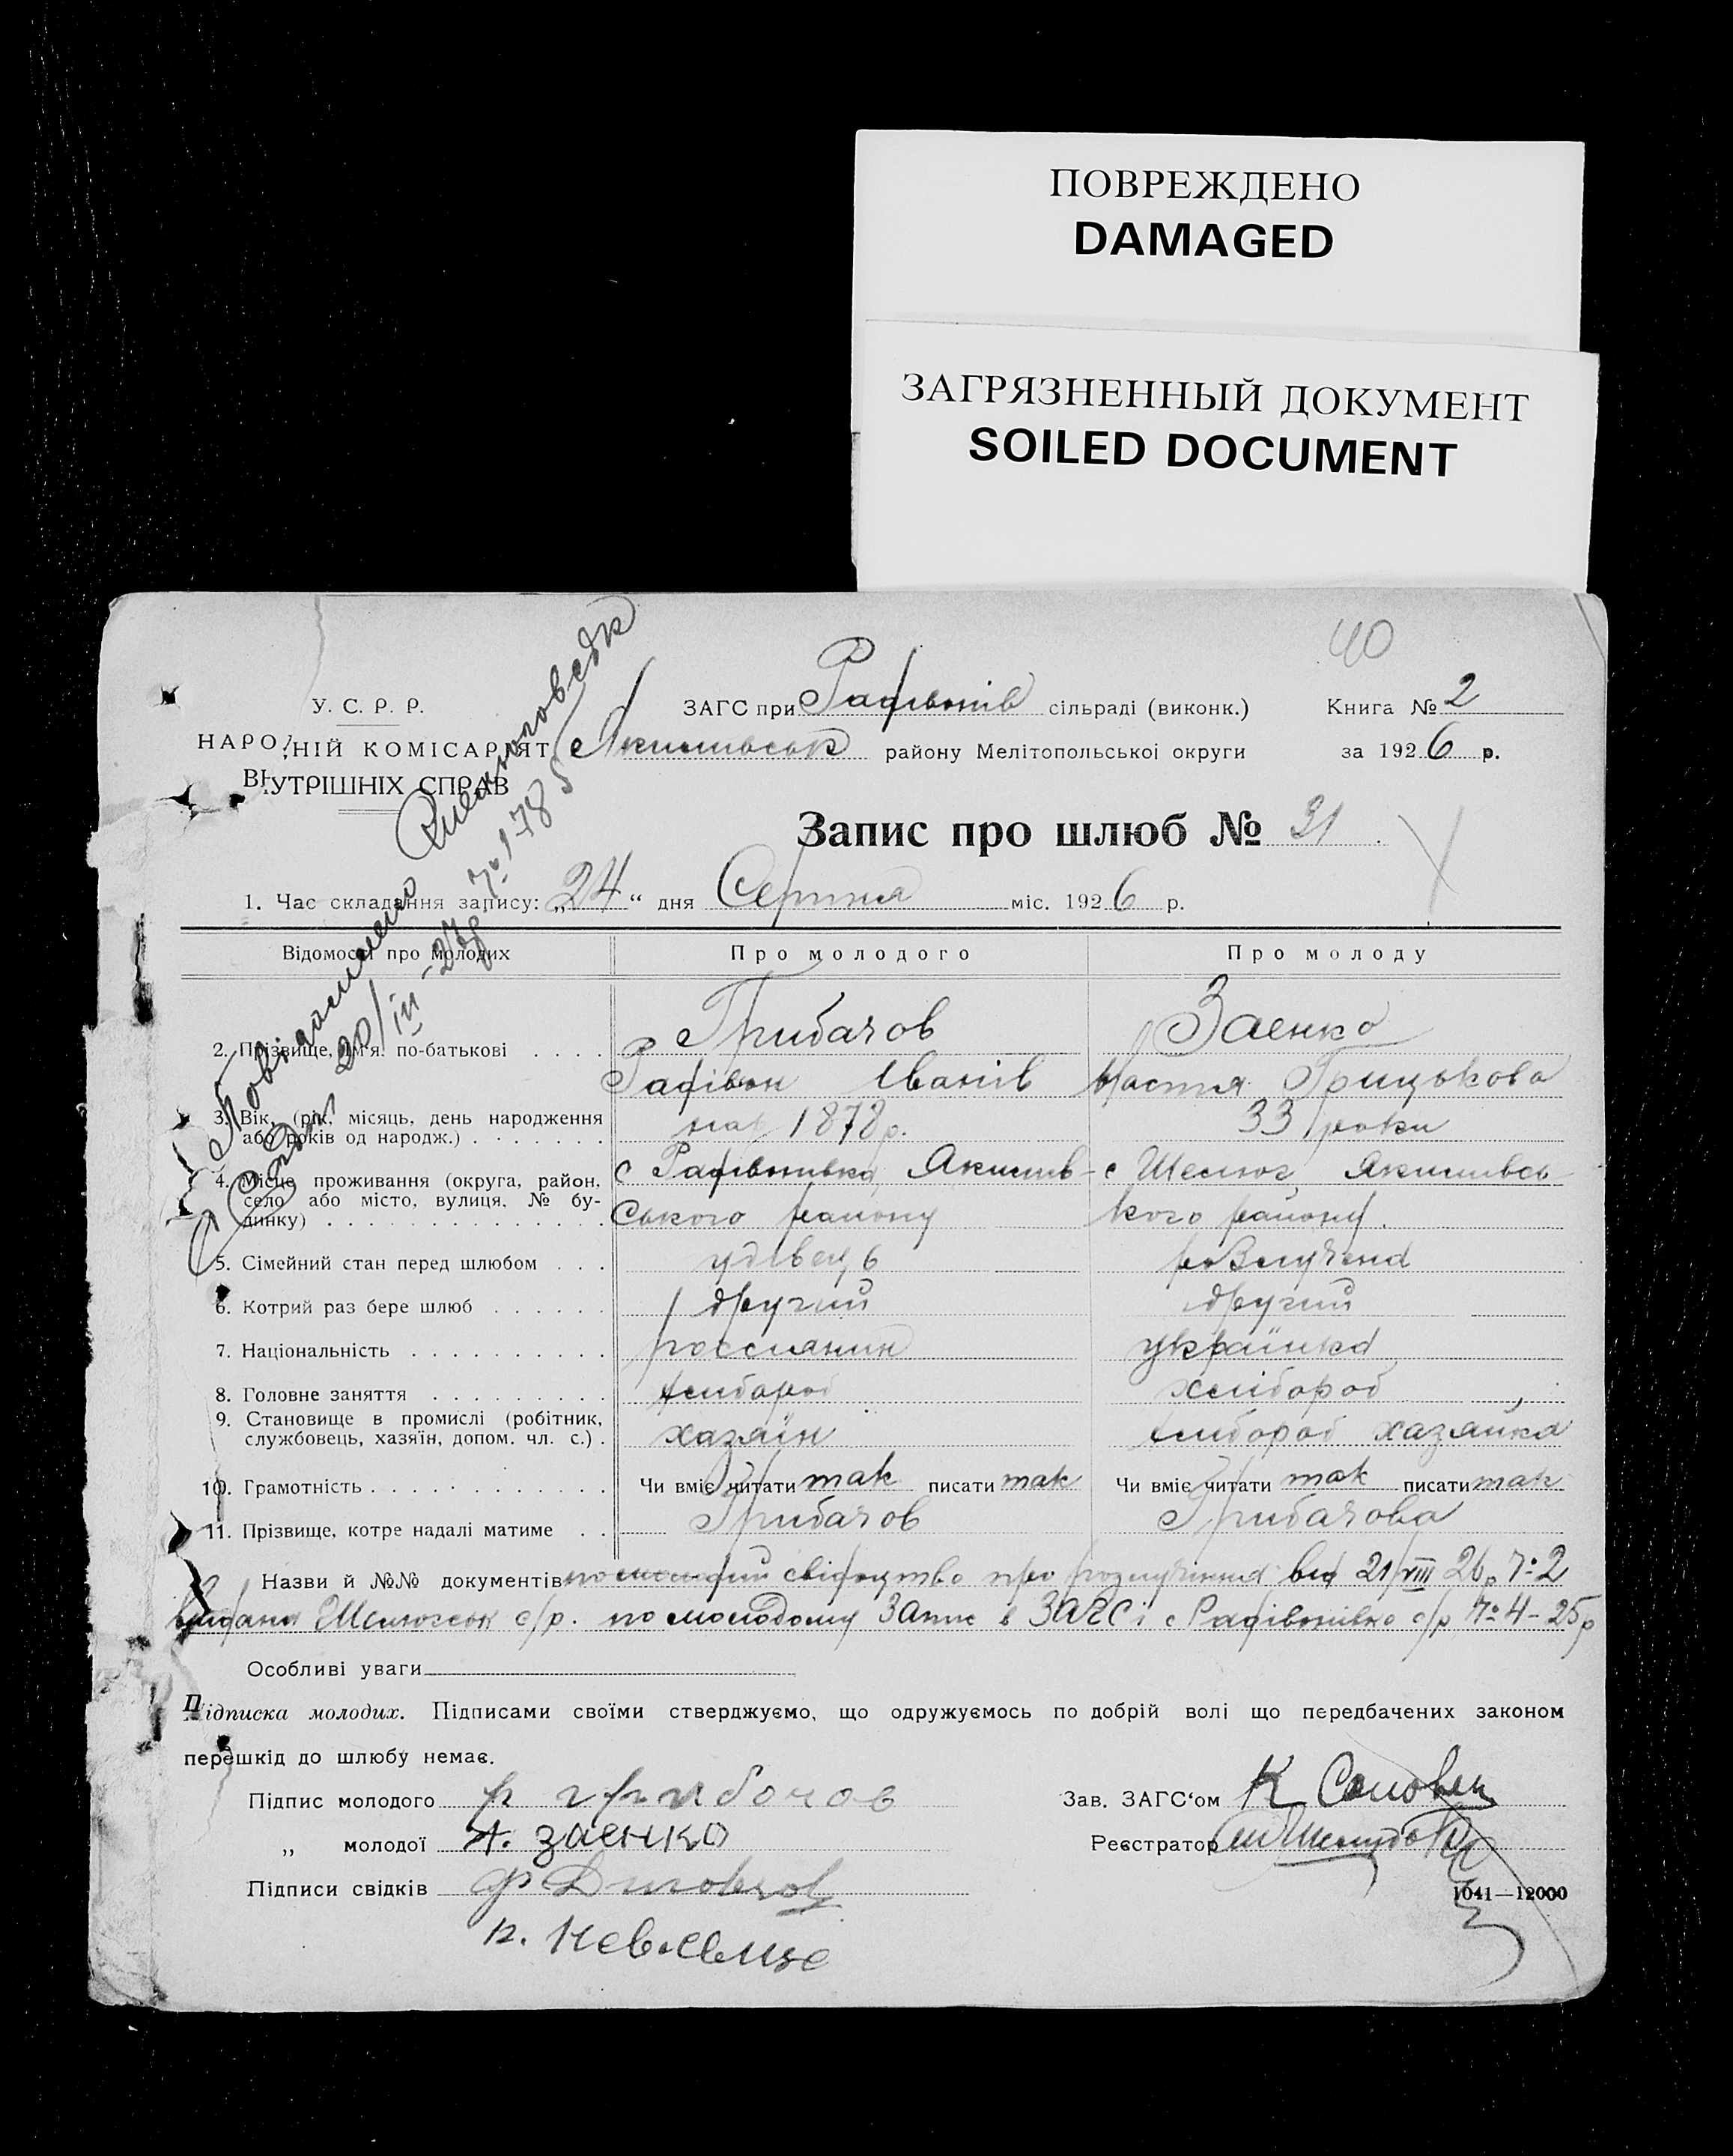 ПОВРЕЖДЕНО
DAMAGED
ЗАГРЯЗНЕННЫЙ ДОКУМЕНТ
SOILED DOCUMENT
40
У. С. Р. Р.
ЗАГС при Радівонів сільраді (виконк.)
Книга № 2
НАРО НІЙ КОМІСАРІЯТ
Якимівськ району Мелітопольської округи
за 1926 р.
ВНУТРІШНІХ СПРАВ
Запис про шлюб № 31
1. Час складання запису: „24“ дня Серпня міс. 1926 р.
Відомості про молодих
Про молодого
Про молоду
2. Прізвище, ім'я. по-батькові
Грибачов
Заенко
Радівон Іванів
Настя Грицькова
3. Вік, (рік, місяць, день народження або років од народж.)
1878 р.
33 роки
4. Місце проживання (округа, район, село або місто, вулиця, № будинку)
с Радівонівка, Якимів-
ського району
с Шелюг, Якимівсь
кого району.
5. Сімейний стан перед шлюбом
удівець
розлучена
6. Котрий раз бере шлюб
другий
другий
7. Національність
россиянин
українка
8. Головне заняття
хлібороб
хлібороб
9. Становище в промислі (робітник, службовець, хазяїн, допом. чл. с.)
хазяїн
хлибороб хазяйка
10. Грамотність
Чи вміє читати так писати так
Чи вміє читати так писати так
11. Прізвище, котре надалі матиме
Грибачов
Грибачова
Назви й №№ документів по молодий свідоцтво про розлучіння від 21/VIII 26 р № 2
видано Шелюгськ с/р. по молодому Запис в ЗАГСі с Радівонівко с/р № 4 - 25 р
Особливі уваги
Підписка молодих. Підписами своїми стверджуємо, що одружуємось по добрій волі що передбачених законом
перешкід до шлюбу немає.
Підпис молодого р грибочов
Зав. ЗАГС‘ом К
„ молодої Н. заенко
Реєстратор
Підписи свідків
1041—12000
20/III - 27р № 1785